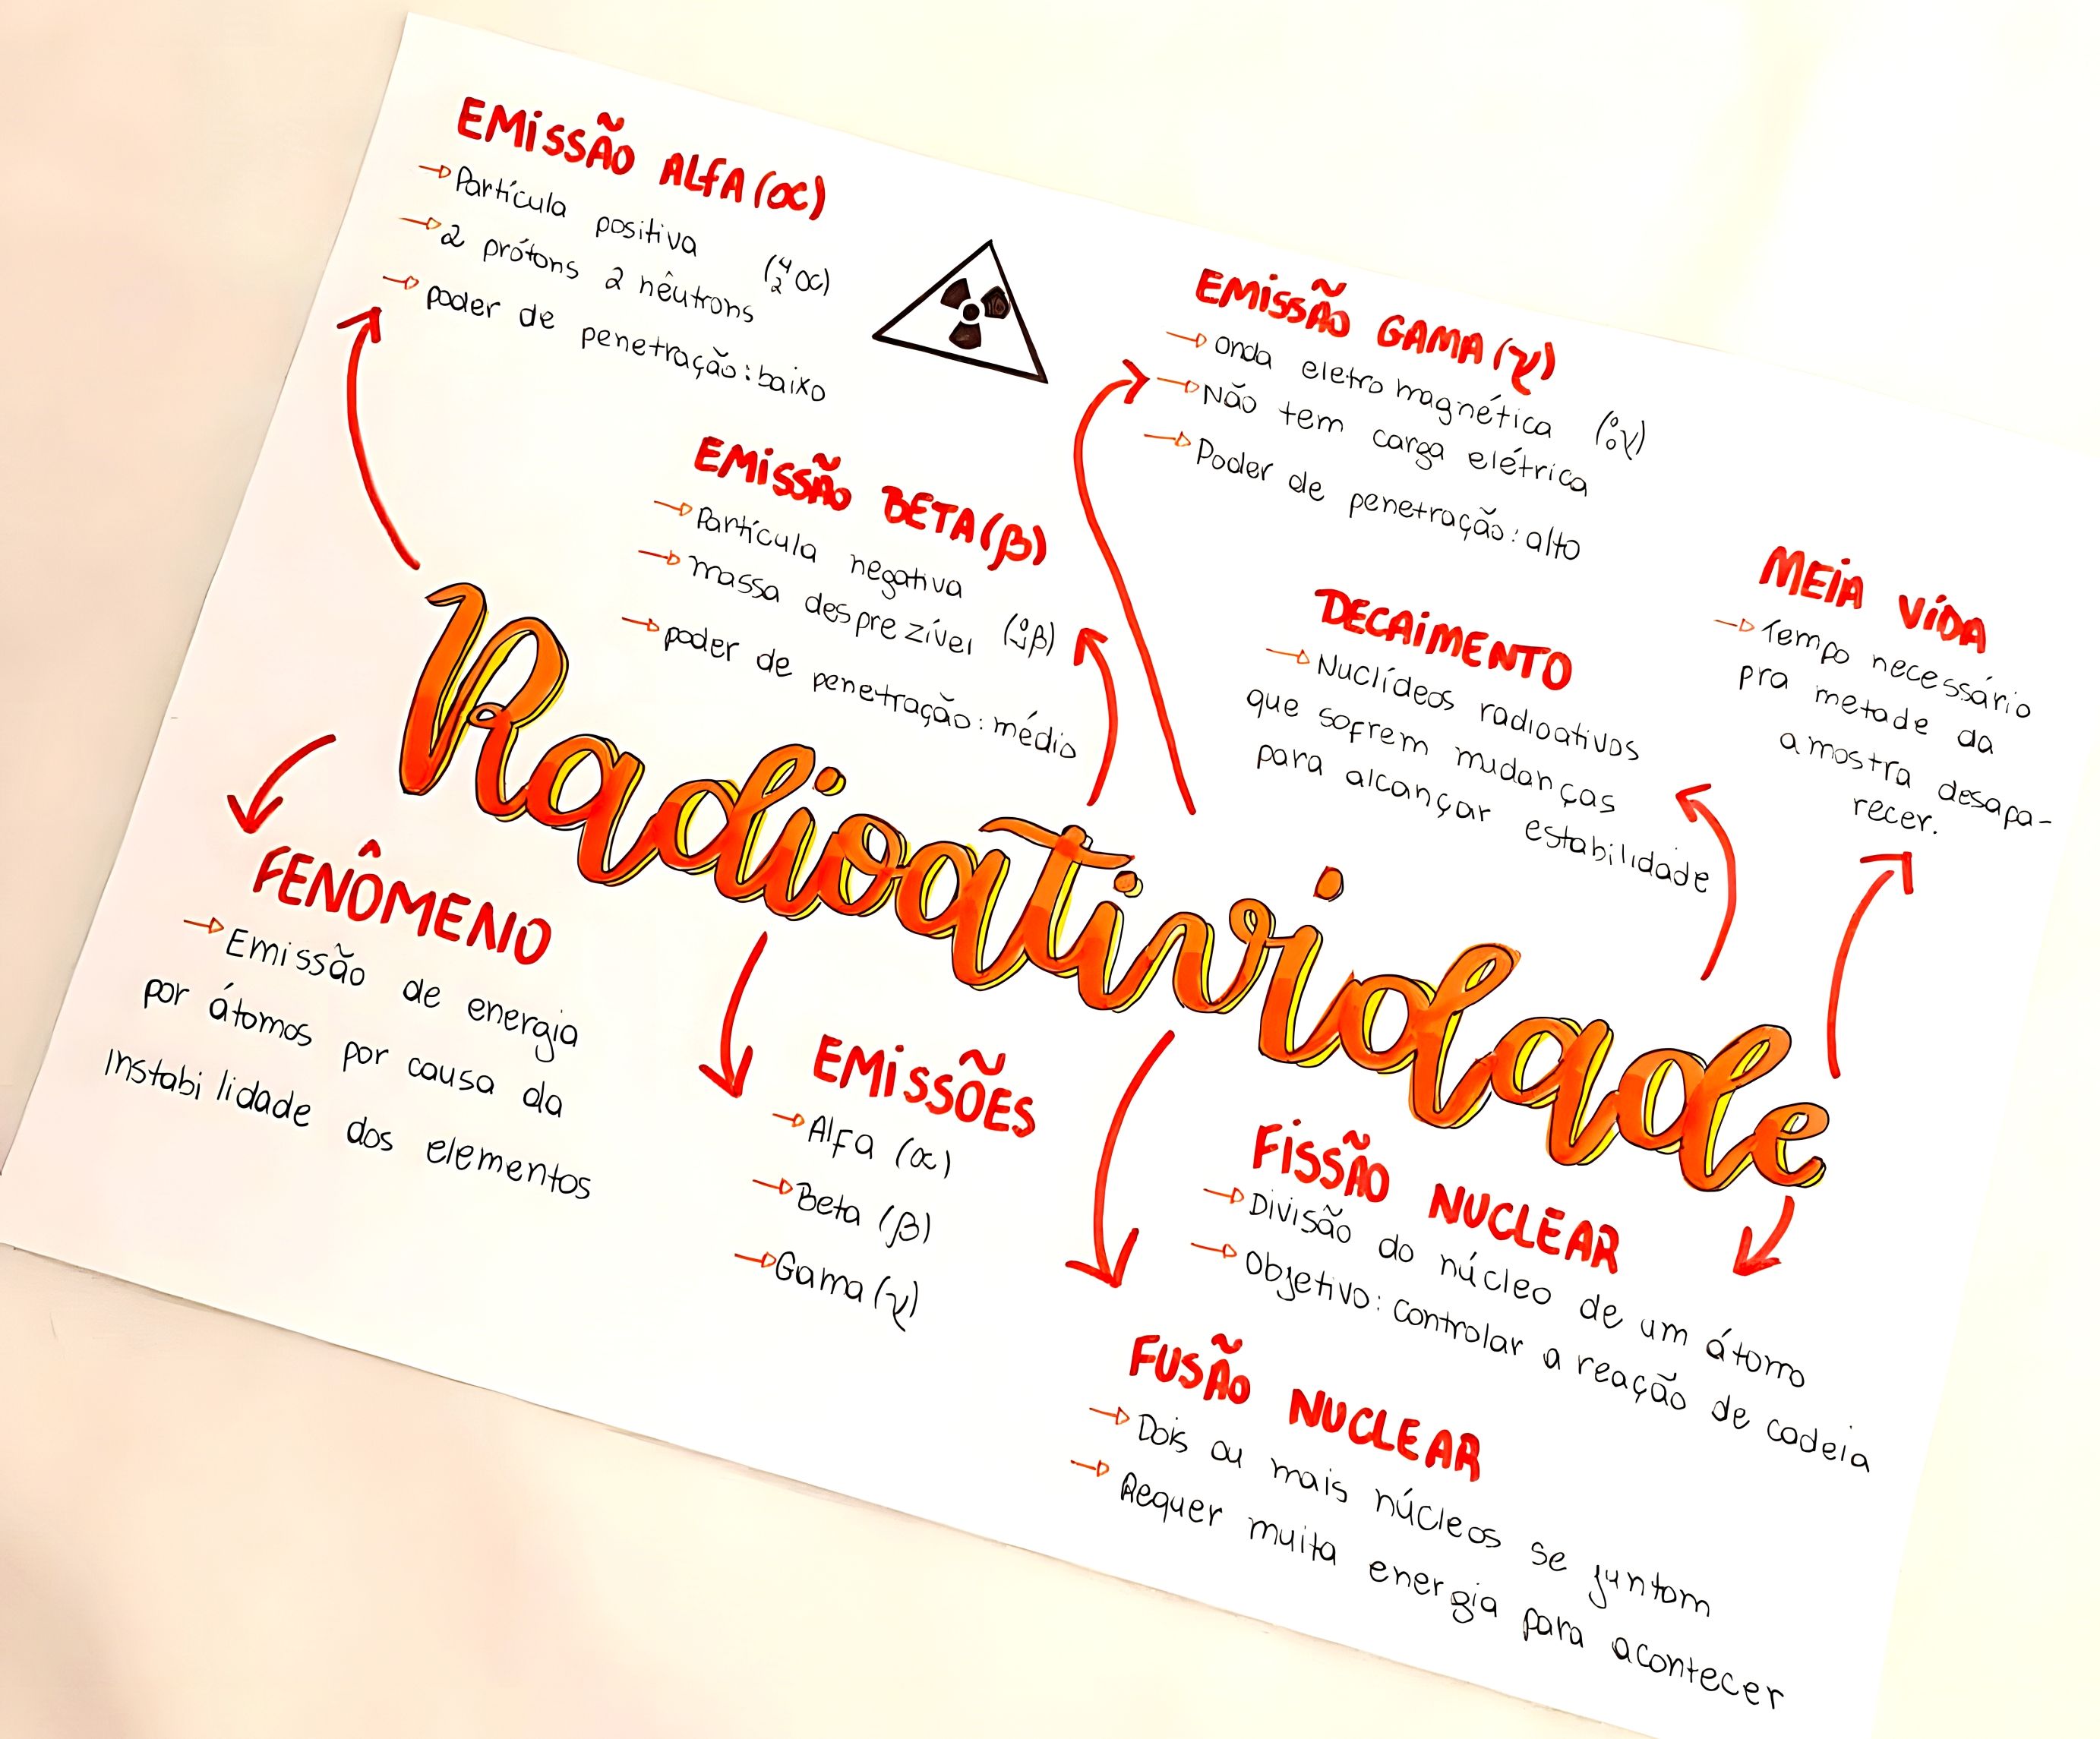 EMISSÃO ALFA (α)
→ Partícula positiva
→ 2 prótons 2 nêutrons (⁴₂α)
→ poder de penetração: baixo
EMISSÃO BETA (β)
→ Partícula negativa
→ massa desprezível (⁰₋₁β)
→ poder de penetração: médio
EMISSÃO GAMA (γ)
→ onda eletromagnética (⁰₀γ)
→ Não tem carga elétrica
→ Poder de penetração: alto
DECAIMENTO
→ Nuclídeos radioativos
que sofrem mudanças
para alcançar estabilidade
MEIA VIDA
→ Tempo necessário
pra metade da
amostra desapa-
recer.
Radioatividade
FENÔMENO
→ Emissão de energia
por átomos por causa da
instabilidade dos elementos
EMISSÕES
→ Alfa (α)
→ Beta (β)
→ Gama (γ)
FISSÃO NUCLEAR
→ Divisão do núcleo de um átomo
→ Objetivo: controlar a reação de cadeia
FUSÃO NUCLEAR
→ Dois ou mais núcleos se juntam
→ Requer muita energia para acontecer